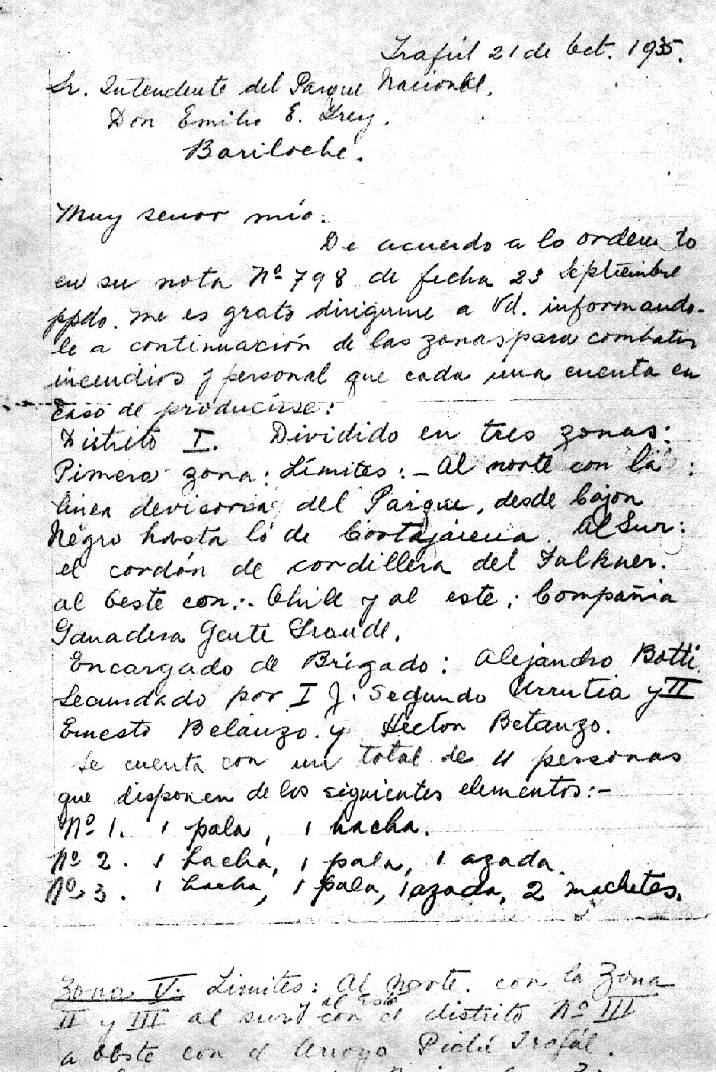 Traful 21 de Oct. 1935.
Sr. Intendente del Parque Nacional.
Don Emilio E. Frey.
Bariloche.
Muy senor mío:
De acuerdo a lo ordenado
en su nota Nº 798 de fecha 23 Septiembre
ppdo. me es grato dirigirme a Vd. informando-
le a continuación de las zonas para combatir
incendios y personal que cada una cuenta en
caso de producirse:
Distrito I. Dividido en tres zonas:
Pimera zona: Límites: - Al norte con la
linea devisoria del Parque, desde Cajon
Negro hasta lo de . Al Sur:
el cordón de cordillera del Falkner.
al Oeste con: Chile y al este: Compañia
Ganadera Gente Grande.
Encargado de Brigado: Alejandro Botti
Secundado por I J. Segundo Urrutia y II
Ernesto Betanzo y Hector Betanzo.
Se cuenta con un total de 4 personas
que disponen de los siguientes elementos: -
Nº 1. 1 pala, 1 hacha.
Nº 2. 1 hacha, 1 pala, 1 azada.
Nº 3. 1 hacha, 1 pala, 1 azada, 2 machetes.
Zona V. Limites: Al Norte. con la Zona
II y III al sur y al Este con el distrito Nº III
a oeste con el Arroyo Pichi Traful.